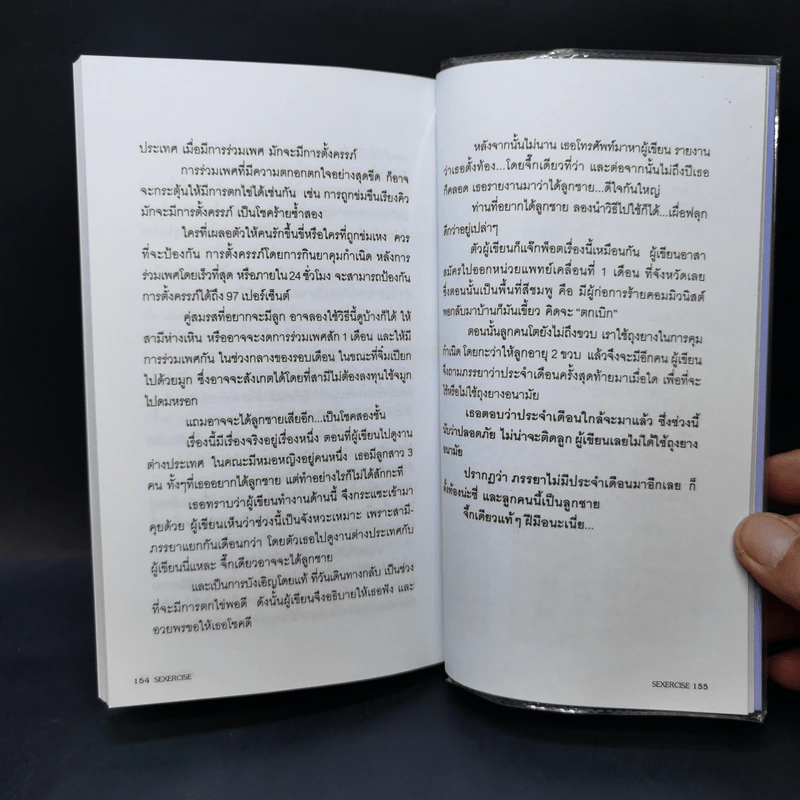 ประเทศ เมื่อมีการร่วมเพศ มักจะมีการตั้งครรภ์
การร่วมเพศที่มีความตกอกตกใจอย่างสุดขีด ก็อาจ
จะกระตุ้นให้มีการตกไข่ได้เช่นกัน เช่น การถูกข่มขืนเรียงคิว
มักจะมีการตั้งครรภ์ เป็นโชคร้ายซ้ำสอง
ใครที่เผลอตัวให้คนรักขึ้นขี่หรือใครที่ถูกข่มเหง ควร
ที่จะป้องกัน การตั้งครรภ์โดยการกินยาคุมกำเนิด หลังการ
ร่วมเพศโดยเร็วที่สุด หรือภายใน 24 ชั่วโมง จะสามารถป้องกัน
การตั้งครรภ์ได้ถึง 97 เปอร์เซ็นต์
คู่สมรสที่อยากจะมีลูก อาจลองใช้วิธีนี้ดูบ้างก็ได้ ให้
สามีห่างเหิน หรืออาจจะงดการร่วมเพศสัก 1 เดือน และให้มี
การร่วมเพศกัน ในช่วงกลางของรอบเดือน ในขณะที่จิ๋มเปียก
ไปด้วยมูก ซึ่งอาจจะสังเกตได้โดยที่สามีไม่ต้องลงทุนใช้จมูก
ไปดมหรอก
แถมอาจจะได้ลูกชายเสียอีก...เป็นโชคสองชั้น
เรื่องนี้มีเรื่องจริงอยู่เรื่องหนึ่ง ตอนที่ผู้เขียนไปดูงาน
ต่างประเทศ ในคณะมีหมอหญิงอยู่คนหนึ่ง เธอมีลูกสาว 3
คน ทั้งๆที่เธออยากได้ลูกชาย แต่ทำอย่างไรก็ไม่ได้สักกะที
เธอทราบว่าผู้เขียนทำงานด้านนี้ จึงกระแซะเข้ามา
คุยด้วย ผู้เขียนเห็นว่าช่วงนี้เป็นจังหวะเหมาะ เพราะสามี-
ภรรยาแยกกันเดือนกว่า โดยตัวเธอไปดูงานต่างประเทศกับ
ผู้เขียนนี่แหละ จึ๊กเดียวอาจจะได้ลูกชาย
และเป็นการบังเอิญโดยแท้ ที่วันเดินทางกลับ เป็นช่วง
ที่จะมีการตกไข่พอดี ดังนั้นผู้เขียนจึงอธิบายให้เธอฟัง และ
อวยพรขอให้เธอโชคดี
154 SEXERCISE
หลังจากนั้นไม่นาน เธอโทรศัพท์มาหาผู้เขียน รายงาน
ว่าเธอตั้งท้อง...โดยจึ๊กเดียวที่ว่า และต่อจากนั้นไม่ถึงปีเธอ
ก็คลอด เธอรายงานมาว่าได้ลูกชาย...ดีใจกันใหญ่
ท่านที่อยากได้ลูกชาย ลองนำวิธีไปใช้ก็ได้...เผื่อฟลุก
ดีกว่าอยู่เปล่าๆ
ตัวผู้เขียนก็แจ๊กพ็อตเรื่องนี้เหมือนกัน ผู้เขียนอาสา
สมัครไปออกหน่วยแพทย์เคลื่อนที่ 1 เดือน ที่จังหวัดเลย
ซึ่งตอนนั้นเป็นพื้นที่สีชมพู คือ มีผู้ก่อการร้ายคอมมิวนิสต์
พอกลับมาบ้านก็มันเขี้ยว คิดจะ “ตกเบิก”
ตอนนั้นลูกคนโตยังไม่ถึงขวบ เราใช้ถุงยางในการคุม
กำเนิด โดยกะว่าให้ลูกอายุ 2 ขวบ แล้วจึงจะมีอีกคน ผู้เขียน
จึงถามภรรยาว่าประจำเดือนครั้งสุดท้ายมาเมื่อใด เพื่อที่จะ
ใช้หรือไม่ใช้ถุงยางอนามัย
เธอตอบว่าประจำเดือนใกล้จะมาแล้ว ซึ่งช่วงนี้
นับว่าปลอดภัย ไม่น่าจะติดลูก ผู้เขียนเลยไม่ได้ใช้ถุงยาง
อนามัย
ปรากฏว่า ภรรยาไม่มีประจำเดือนมาอีกเลย ก็
ตั้งท้องน่ะซี่ และลูกคนนี้เป็นลูกชาย
จึ๊กเดียวแท้ๆ ฝีมือนะเนี่ย...
SEXERCISE 155